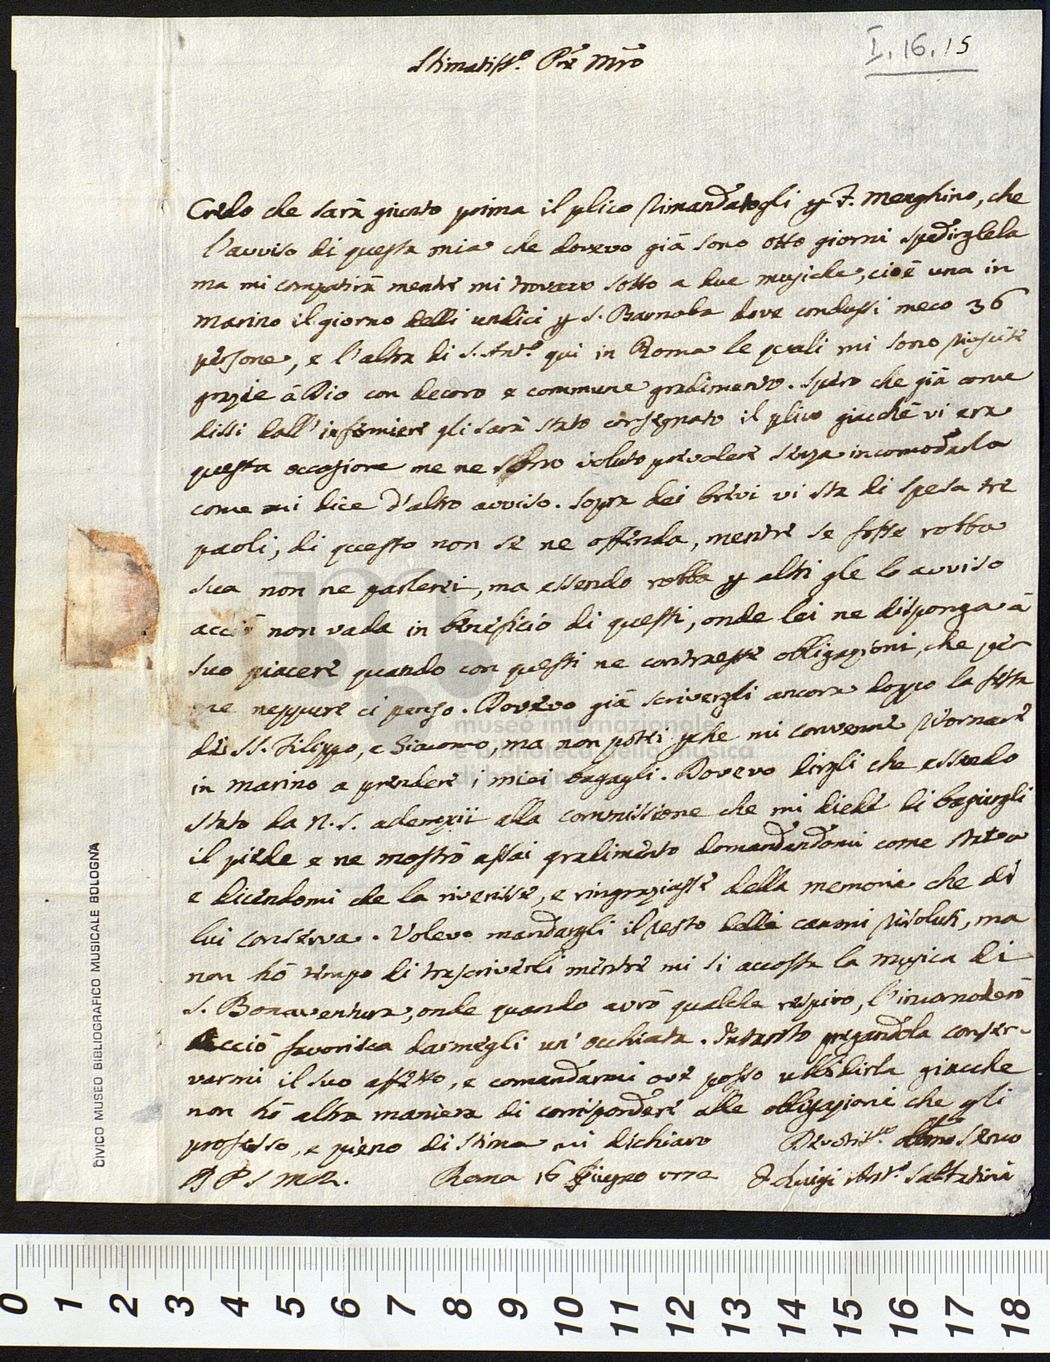 I.16.15
Stimatiss.o Pre Mro
Credo che sarà giunto prima il plico rimandatogli p F. Menghino, che
l'avviso di questa mia che dovevo già sono otto giorni spedirglela
ma mi compatirà mentre mi trovavo sotto a due musiche, cioè una in
Marino il giorno delli undici p S. Barnaba dove condussi meco 36
persone, e l'altra di S. Ant.o qui in Roma le quali mi sono riuscite
grazie à Dio con decoro e commune gradimento. Spero che già come
dissi dall'infermiere gli sarà stato consegnato il plico giacchè vi era
questa occasione me ne sono voluto prevalere senza incomodarla
come mi dice d'altro avviso. Sopra dei brevi vi sta di spesa tre
paoli, di questo non se ne offenda, mentre se fosse robba
sua non ne parlerei, ma essendo robba p altri gle lo avviso
acciò non vada in beneficio di questi, onde lei ne disponga à
suo piacere quando con questi ne contraesse obligazioni, che per
me neppure ci penso. Dovevo già scrivergli ancora doppo la festa
de SS. Filippo, e Giacomo, ma non potei pche mi convenne ritornare
in Marino a prendere i miei bagagli. Dovevo dirgli che essendo
stato da N.S. adempii alla commissione che mi diede di bagiargli
il piede e ne mostrò assai gradimento domandandomi come stava
e dicendomi che la riverisse, e ringraziasse della memoria che di
lui conserva. Volevo mandargli il resto delli canoni risoluti, ma
non hò tempo di trascriverli mentre mi si accosta la musica di
S. Bonaventura, onde quando avrò qualche respiro, l'incomoderò
acciò favorisca darmegli un'occhiata. Intanto pregandola conser-
varmi il suo affetto, e comandarmi ove posso ubbidirla giacche
non hò altra maniera di corrispondere alle obligazioni che gli
professo, e pieno di stima mi dichiaro Devotis.mo Servo
D P S M R. Roma 16 Giugno F Luigi Ant.o Sabbatini
CIVICO MUSEO BIBLIOGRAFICO MUSICALE BOLOGNA
museo internazionale
e biblioteca della musica
di bologna
0 1 2 3 4 5 6 7 8 9 10 11 12 13 14 15 16 17 18